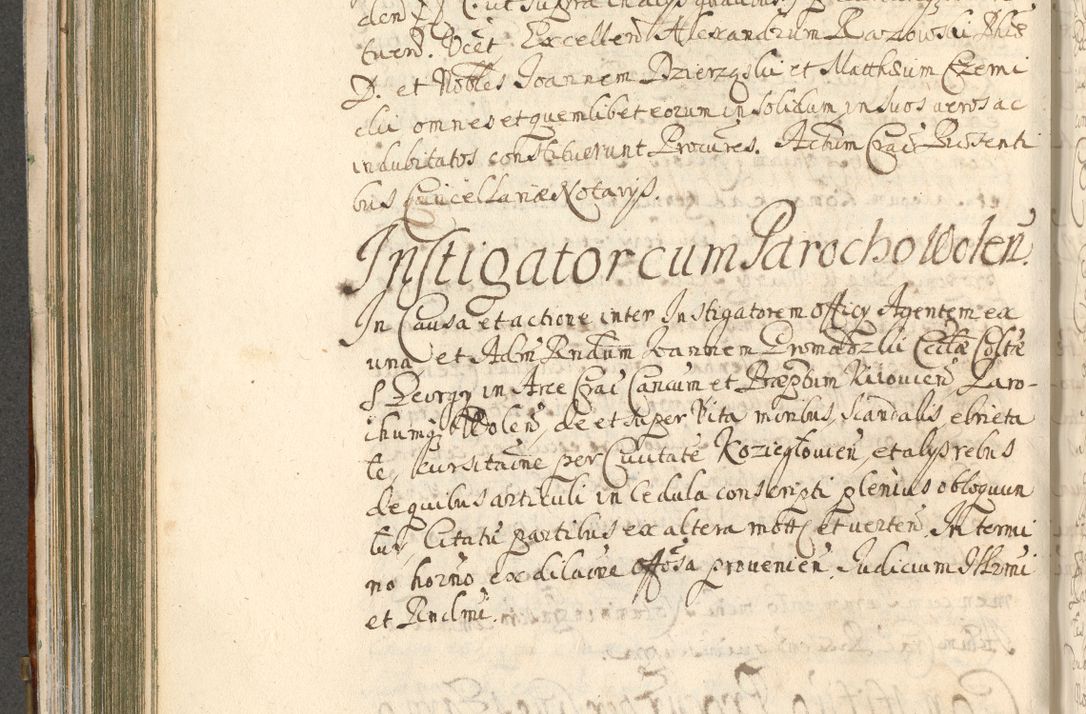 tuerñ. Vcet Excellen Alexandrum Razowski Phiæ
D. et Nobles Joannem Dzierzgski et Matthæum Czemi
clii omnes et quemlibet eorum in solidum in suos veros ac
indubitatos constituerunt Procures. Actum Craĩ Præsenti
bus Cancellariæ Notarijs.
Instigator cum Parocho Wolen̄.
In Causa et actione inter Instigatorem officy Agentem ex
una et Adm̃ Rndum Joannem Gromadzki Eccłæ Collte
S Georgy in Arce Craĩ Cancum et Præptum Kijovien̄, Paro-
chumq Wolen̄, de et super Vita moribus, scandalis, ebrieta
te, cursitaõne per Civitatẽ Koziegłovien̄, et alys rebus
de quibus artikuli in Cedula conscripti plenius obloquun
tur, Citatũ partibus ex altera mott et verten̄. In termi
no horno ex dilaõne offosa provenien̄. Judicium Illrmi
et Rndmi.